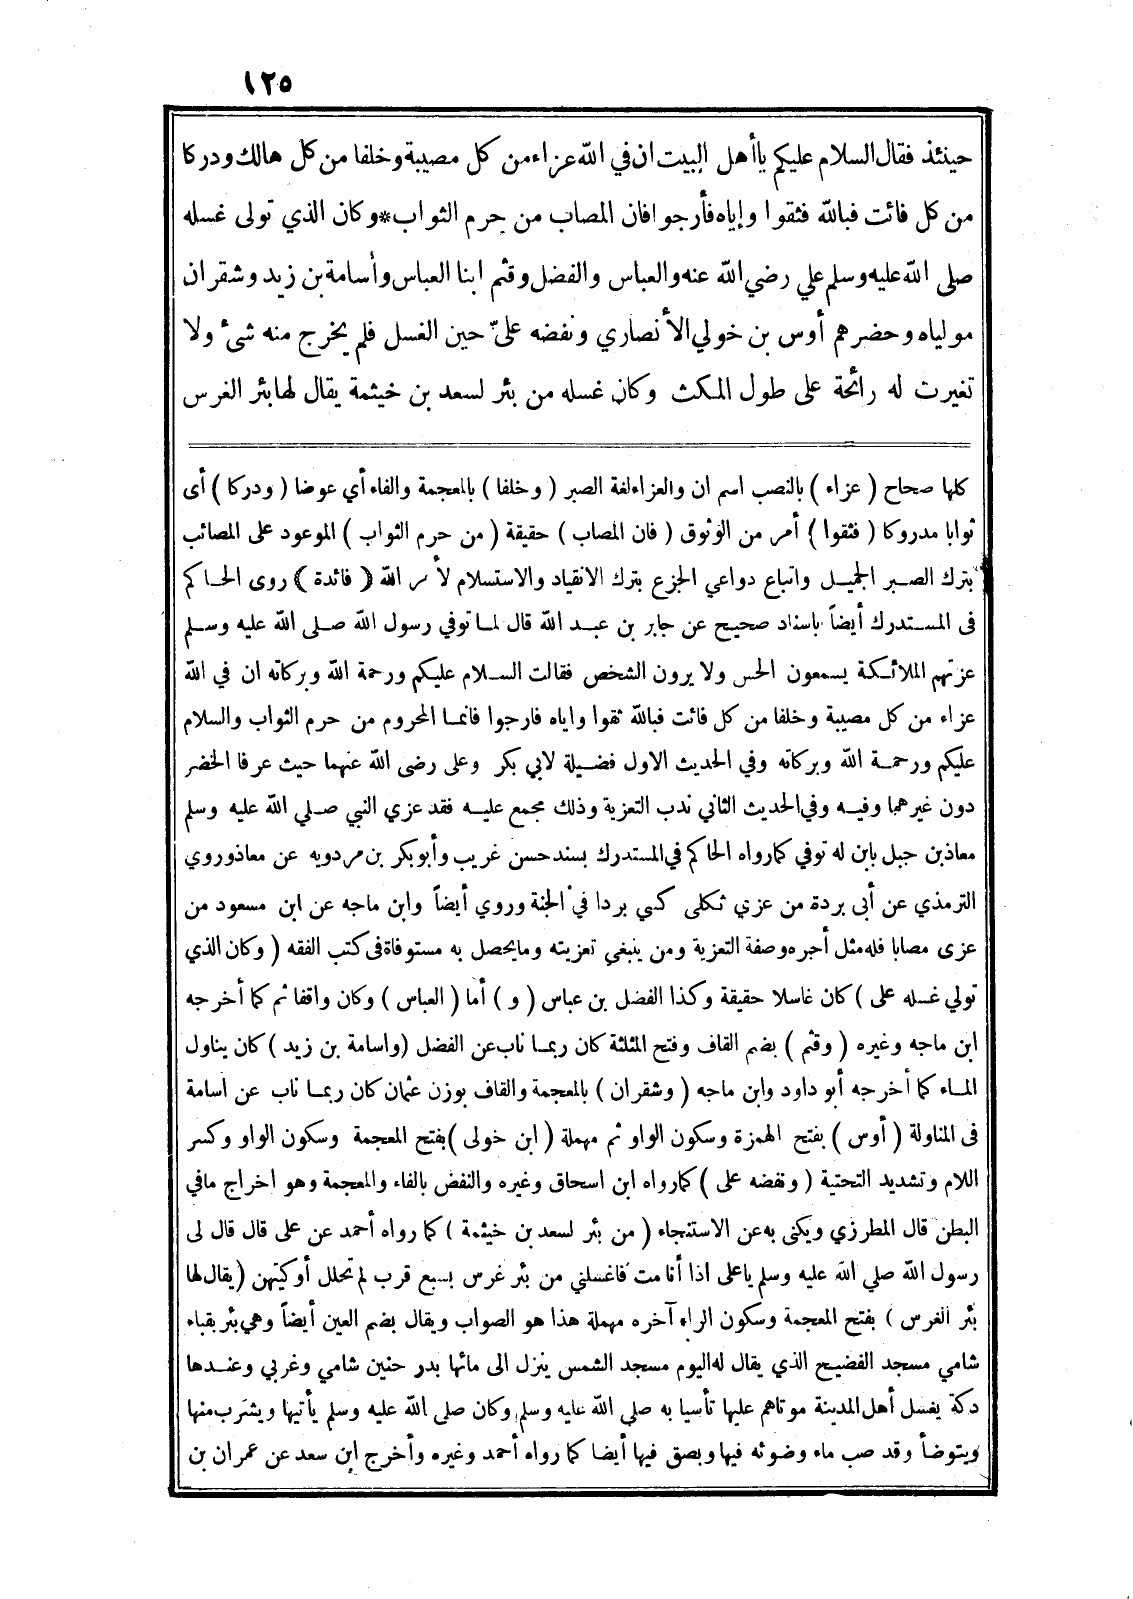 ١٢٥
حينئذ فقال السلام عليكم ياأهل البيت ان في الله عزاء من كل مصيبة وخلفا من كل هالك ودركا
من كل فائت فبالله فثقوا وإياه فأرجوا فان المصاب من حرم الثواب*وكان الذي تولى غسله
صلى الله عليه وسلم علي رضي الله عنه والعباس والفضل وقثم ابنا العباس وأسامة بن زيد وشقران
مولياه وحضرهم أوس بن خولي الأنصاري ونفضه عليّ حين الغسل فلم يخرج منه شئ ولا
تغيرت له رائحة على طول المكث وكان غسله من بئر لسعد بن خيثمة يقال لها بئر الغرس
كلها صحاح ( عزاء ) بالنصب اسم ان والعزاء لغة الصبر ( وخلفا ) بالمعجمة والفاء أي عوضا ( ودركا ) أى
ثوابا مدروكا ( فثقوا ) أمر من الوثوق ( فان المصاب ) حقيقة ( من حرم الثواب ) الموعود على المصائب
بترك الصبر الجميل واتباع دواعي الجزع بترك الانقياد والاستسلام لأمر الله ( فائدة ) روى الحاكم
فى المستدرك أيضاً باسناد صحيح عن جابر بن عبد الله قال لما توفي رسول الله صلى الله عليه وسلم
عزتهم الملائكة يسمعون الحس ولا يرون الشخص فقالت السلام عليكم ورحمة الله وبركاته ان في الله
عزاء من كل مصيبة وخلفا من كل فائت فبالله ثقوا واياه فارجوا فانما المحروم من حرم الثواب والسلام
عليكم ورحمة الله وبركاته وفي الحديث الاول فضيلة لابي بكر وعلى رضى الله عنهما حيث عرفا الخضر
دون غيرهما وفيه وفي الحديث الثاني ندب التعزية وذلك مجمع عليه فقد عزي النبي صلي الله عليه وسلم
معاذ بن جبل بابن له توفي كما رواه الحاكم في المستدرك بسند حسن غريب وأبو بكر بن مردويه عن معاذ وروي
الترمذي عن أبى بردة من عزي ثكلى كسي بردا في الجنة وروي أيضاً وابن ماجه عن ابن مسعود من
عزى مصابا فله مثل أجره وصفة التعزية ومن ينبغي تعزيته وما يحصل به مستوفاة فى كتب الفقه ( وكان الذي
تولي غسله على ) كان غاسلا حقيقة وكذا الفضل بن عباس ( و ) أما ( العباس ) وكان واقفا ثم كما أخرجه
ابن ماجه وغيره ( وقثم ) بضم القاف وفتح المثلثة كان ربما ناب عن الفضل (واسامة بن زيد ) كان يناول
الماء كما أخرجه أبو داود وابن ماجه ( وشقران ) بالمعجمة والقاف بوزن عثمان كان ربما ناب عن اسامة
فى المناولة ( أوس ) بفتح الهمزة وسكون الواو ثم مهملة ( ابن خولى ) بفتح المعجمة وسكون الواو وكسر
اللام وتشديد التحتية ( ونفضه على ) كما رواه ابن اسحاق وغيره والنفض بالفاء والمعجمة وهو اخراج مافي
البطن قال المطرزي ويكنى به عن الاستنجاء ( من بئر لسعد بن خيثمة ) كما رواه أحمد عن على قال قال لى
رسول الله صلي الله عليه وسلم ياعلى اذا أنا مت فاغسلني من بئر غرس بسبع قرب لم تحلل أوكيتهن (يقال لها
بئر الغرس ) بفتح المعجمة وسكون الراء آخره مهملة هذا هو الصواب ويقال بضم العين أيضاً وهي بئر بقباء
شامي مسجد الفضيخ الذي يقال له اليوم مسجد الشمس ينزل الى مائها بدر حنين شامي وغربي وعندها
دكة يغسل أهل المدينة موتاهم عليها تأسيا به صلي الله عليه وسلم وكان صلى الله عليه وسلم يأتيها ويشرب منها
ويتوضأ وقد صب ماء وضوئه فيها وبصق فيها أيضا كما رواه أحمد وغيره وأخرج ابن سعد عن عمران بن